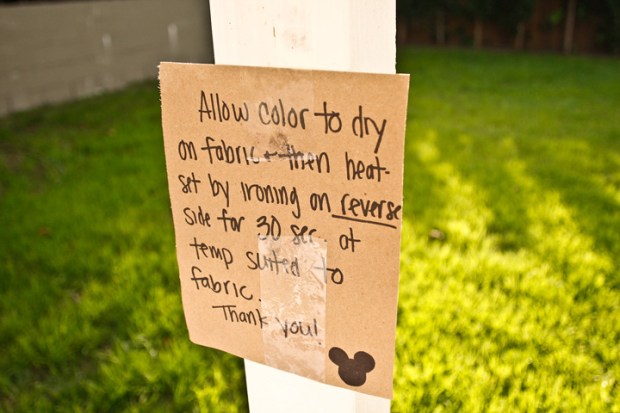 Allow color to dry
on fabric + then heat-
set by ironing on reverse
side for 30 sec. at
temp suited to
fabric.
Thank you!